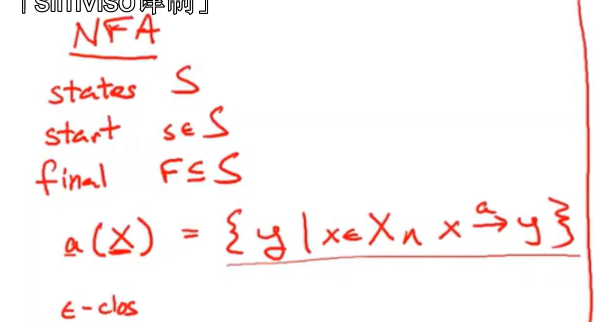 「simviso译制」
NFA
states S
start s∈S
final F⊆S
a(X) = {y | x∈X ∧ x →ᵃ y}
ε-clos